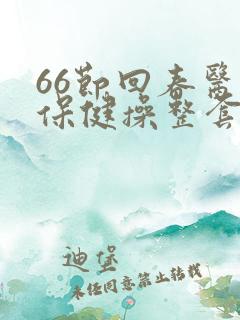 66節回春醫
保健操整套
迪堡
未经同意禁止转载